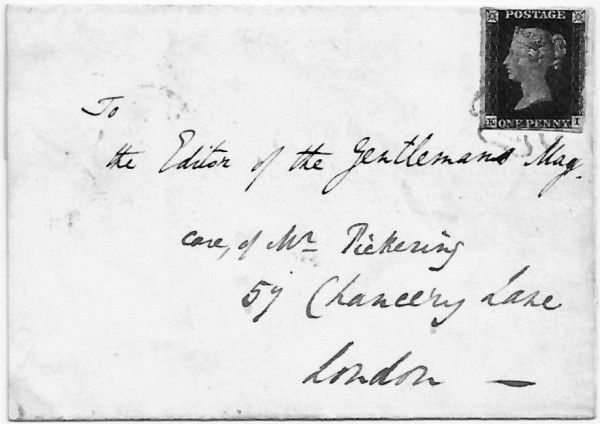 POSTAGE
K ONE PENNY I
To
the Editor of the Gentlemans Mag.
care, of Mr Pickering
57 Chancery Lane
London —